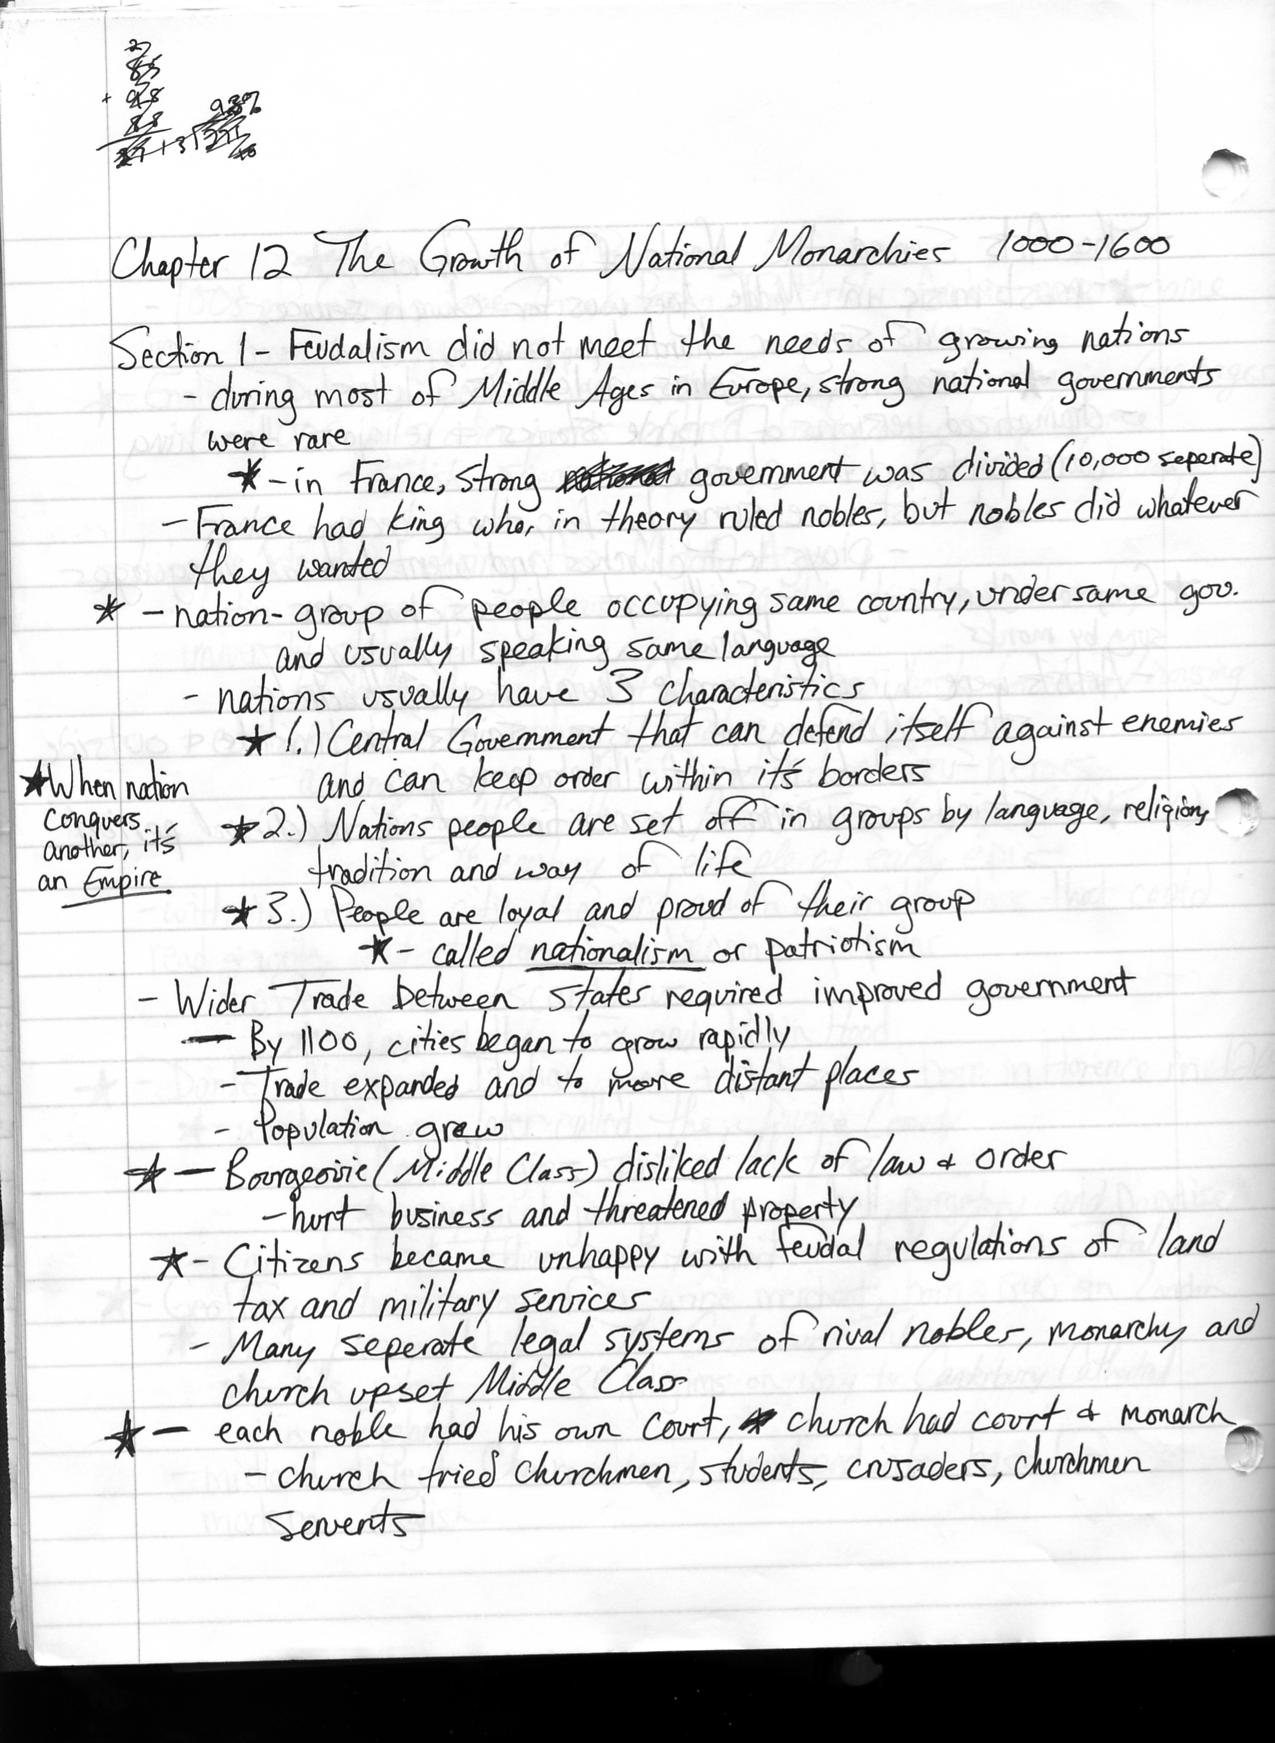 2
85
+ 98
88
93%
Chapter 12 The Growth of National Monarchies 1000-1600
Section 1 - Feudalism did not meet the needs of growing nations
- during most of Middle Ages in Europe, strong national governments
were rare
★ - in France, strong government was divided (10,000 seperate)
- France had king who, in theory ruled nobles, but nobles did whatever
they wanted
★ - nation - group of people occupying same country, under same gov.
and usually speaking same language
- nations usually have 3 characteristics
★ 1.) Central Government that can defend itself against enemies
and can keep order within it's borders
★ When nation
conquers
another, it's
an Empire
★ 2.) Nations people are set off in groups by language, religion,
tradition and way of life
★ 3.) People are loyal and proud of their group
★ - called nationalism or patriotism
- Wider Trade between states required improved government
- By 1100, cities began to grow rapidly
- Trade expanded and to more distant places
- Population grew
★ - Bourgeoisie (Middle Class) disliked lack of law & order
- hurt business and threatened property
★ - Citizens became unhappy with feudal regulations of land
tax and military services
- Many seperate legal systems of rival nobles, monarchy and
church upset Middle Class
★ - each noble had his own court, church had court & monarch
- church tried churchmen, students, crusaders, churchmen
servents